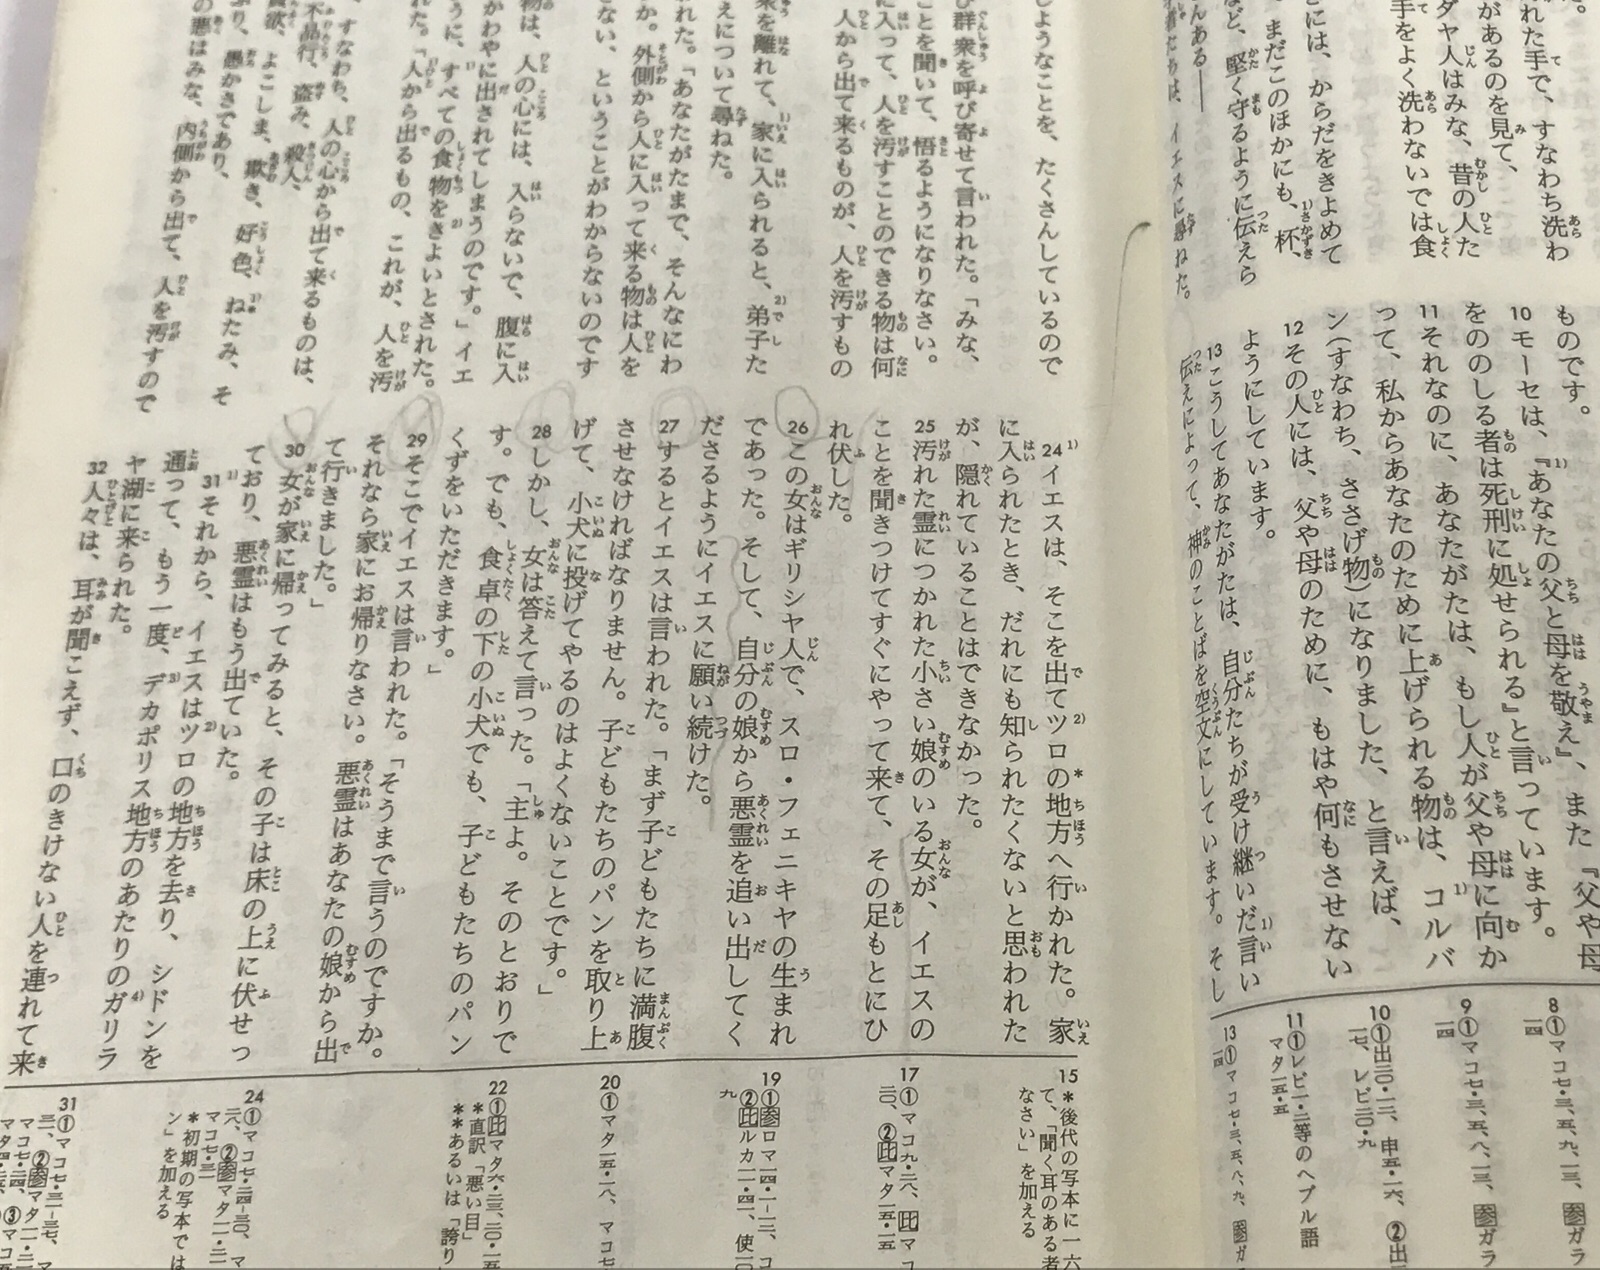 れた手で、すなわち洗わ
があるのを見て、
ダヤ人はみな、昔の人た
手をよく洗わないでは食
こには、からだをきよめて
まだこのほかにも、杯、
など、堅く守るように伝えら
んある——
イエスに尋ねた。
ものです。
10モーセは、『あなたの父と母を敬え』、また『父や母
をののしる者は死刑に処せられる』と言っています。
11それなのに、あなたがたは、もし人が父や母に向か
って、私からあなたのために上げられる物は、コルバ
ン(すなわち、ささげ物)になりました、と言えば、
12その人には、父や母のために、もはや何もさせない
ようにしています。
13こうしてあなたがたは、自分たちが受け継いだ言い
伝えによって、神のことばを空文にしています。そし
8①マコ七・三、五、九、一三、参ガラ
一四
9①マコ七・三、五、八、一三、参ガラ
一四
10①出二〇・一二、申五・一六、②出
一七、レビ二〇・九
11①レビ一・二等のヘブル語
マタ一五・五
13①マコ七・三、五、八、九、参ガ
一四
しようなことを、たくさんしているので
び群衆を呼び寄せて言われた。「みな、
ことを聞いて、悟るようになりなさい。
に入って、人を汚すことのできる物は何
人から出て来るものが、人を汚すもの
衆を離れて、家に入られると、弟子た
えについて尋ねた。
れた。「あなたがたまで、そんなにわ
か。外側から人に入って来る物は人を
ない、ということがわからないのです
物は、人の心には、入らないで、腹に入
かわやに出されてしまうのです。」イエ
うに、すべての食物をきよいとされた。
れた。「人から出るもの、これが、人を汚
すなわち、人の心から出て来るものは、
不品行、盗み、殺人、
貪欲、よこしま、欺き、好色、ねたみ、そ
り、愚かさであり、
の悪はみな、内側から出て、人を汚すので
24イエスは、そこを出てツロの*地方へ行かれた。家
に入られたとき、だれにも知られたくないと思われた
が、隠れていることはできなかった。
25汚れた霊につかれた小さい娘のいる女が、イエスの
ことを聞きつけてすぐにやって来て、その足もとにひ
れ伏した。
26この女はギリシヤ人で、スロ・フェニキヤの生まれ
であった。そして、自分の娘から悪霊を追い出してく
ださるようにイエスに願い続けた。
27するとイエスは言われた。「まず子どもたちに満腹
させなければなりません。子どもたちのパンを取り上
げて、小犬に投げてやるのはよくないことです。」
28しかし、女は答えて言った。「主よ。そのとおりで
す。でも、食卓の下の小犬でも、子どもたちのパン
くずをいただきます。」
29そこでイエスは言われた。「そうまで言うのですか。
それなら家にお帰りなさい。悪霊はあなたの娘から出
て行きました。」
30女が家に帰ってみると、その子は床の上に伏せっ
ており、悪霊はもう出ていた。
31それから、イエスはツロの地方を去り、シドンを
通って、もう一度、デカポリス地方のあたりのガリラ
ヤ湖に来られた。
32人々は、耳が聞こえず、口のきけない人を連れて来
15*後代の写本に一六
て、「聞く耳のある者
なさい」を加える
17①マコ九・二八、比マコ
三〇、②比マタ一五・一五
19①参ロマ一四・一—一二、コ
②比ルカ一一・四一、使一〇
九
20①マタ一五・一八、マコ七
22①比マタ六・二三、二〇・一五
*直訳「悪い目」
**あるいは「誇り
24①マコ七・二四—三〇、マ
②参マタ一一・二一
マコ七・三一
*初期の写本では
ン」を加える
31①マコ七・三一—三七、